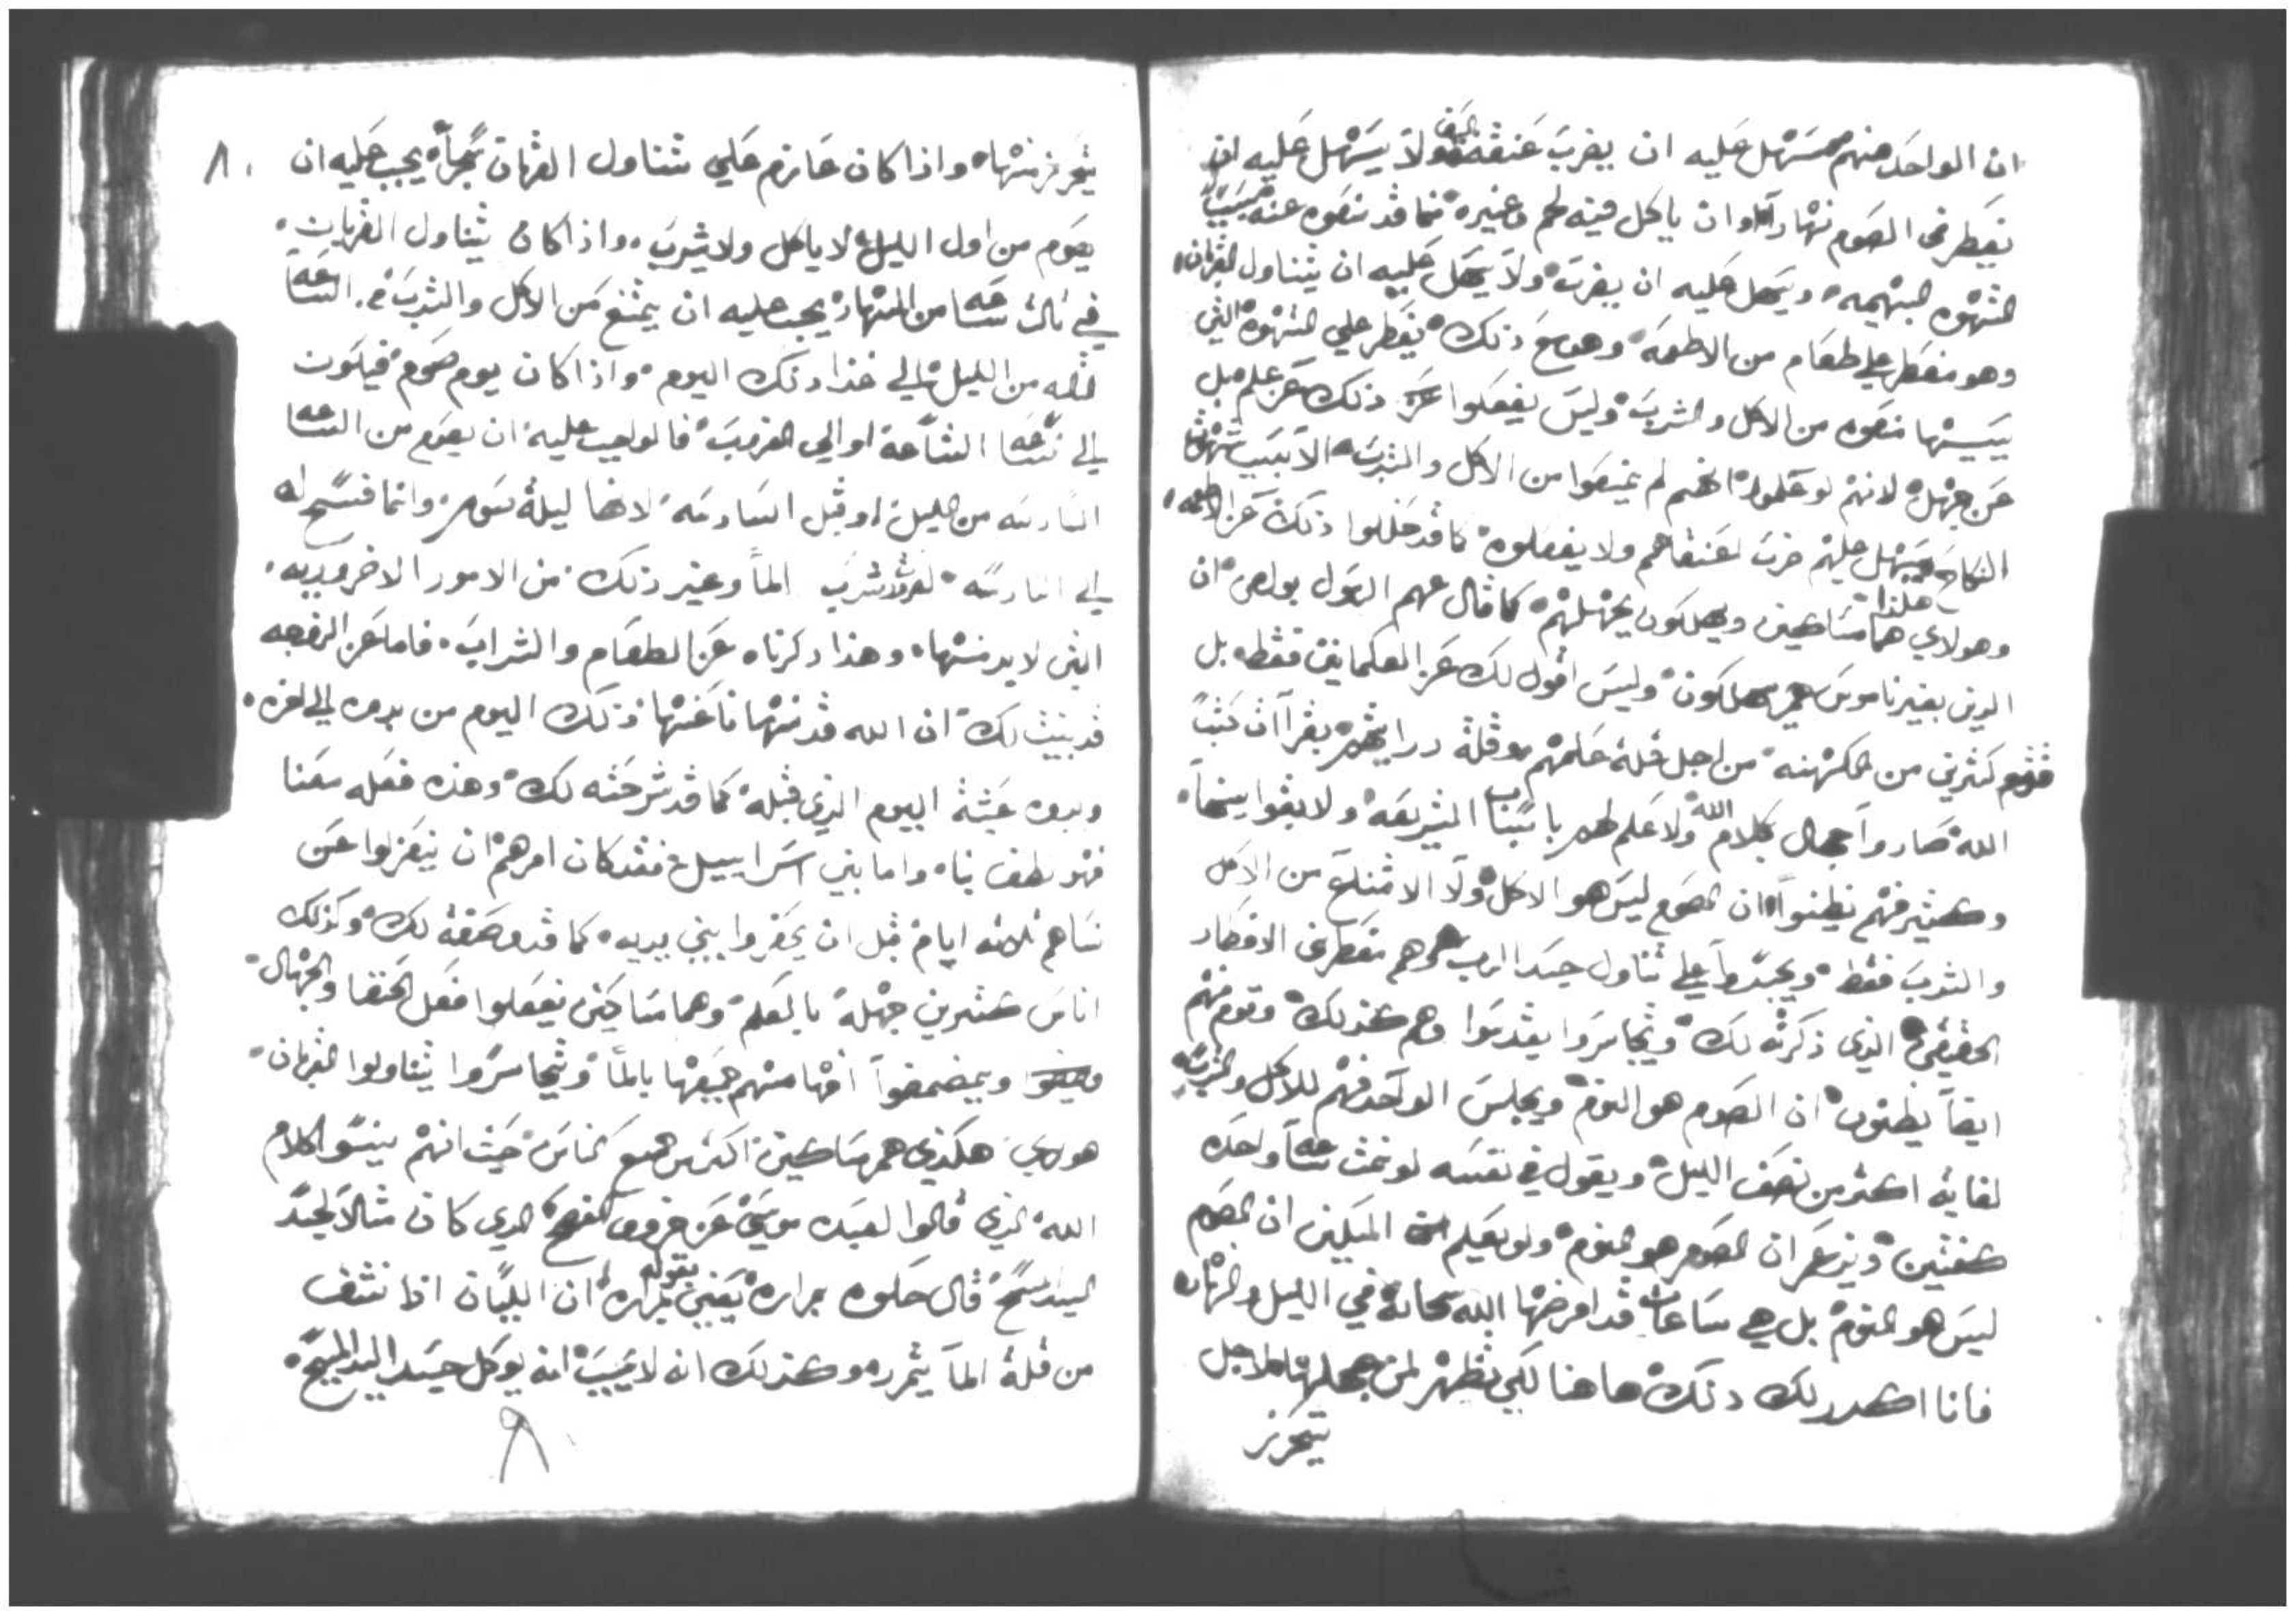 ان الواحد منهم يسهل عليه ان يضرب عنقه بالسيف ولا يسهل عليه ان
يفطر في الصوم نهاراً او ان ياكل فيه لحم وغيره مما قد منعوه عنه بسبب
الشهوه البهيميه ويسهل عليه ان يضرب ولا يسهل عليه ان يتناول القربان
وهو مفطر علي طعام من الاطعمه وهو مع ذلك يفطر علي الشهوه التي
بسببها منعوه من الاكل والشرب وليس يفعلوا ذلك عن علم بل
عن جهل لانهم لو علموا انهم لم يمنعوا من الاكل والشرب الا بسبب شهوة
النكاح يسهل عليهم ضرب اعناقهم ولا يفعلوه كما قد ذلك عن الاطعمه
وهولاي هما هكذا مساكين ويهلكون بجهلهم كما قال عنهم الرسول بولص ان
الدين بغير ناموس هم يهلكون وليس اقول لك عن العلمانيين فقط بل
فثم كثيرين من الكهنه من اجل قلة علمهم وقلة درايتهم بقراات كتب
الله صاروا جهال بكلام الله ولا علم لهم باسباب الشريعه ولا بقوانينها
وكثير منهم يظنوا ان الصوم ليس هو الا الاكل ولا الامتناع من الاكل
والشرب فقط ويجسروا علي تناول جسد الرب وهم مفطرين الافطار
الحقيقي الذي ذكرته لك ويتجاسروا يقدسوا وهم كذلك وقوم منهم
ايضاً يظنون ان الصوم هو النوم ويجلس الواحد منهم للاكل والشرب
لغاية اكثر من نصف الليل ويقول في نفسه لو نمت ساعه واحده
كفتني ويزعم ان الصوم هو النوم ولم يعلم المسكين ان الصوم
ليس هو النوم بل هي ساعات قد افرضها الله سبحانه في الليل والنهار
فانا اكرر لك ذلك هاهنا لكي تظهر لمن يجهلها لاجل
يتحرز
٨٠
يتحرز منها واذا كان عازم علي تناول القربان يجب عليه ان
يصوم من اول الليل لا ياكل ولا يشرب واذا كان يتناول القربان
في تالت ساعه من النهار يجب عليه ان يمتنع من الاكل والشرب في الساعه
التالته من الليل الي غذا ذلك اليوم واذا كان يوم صوم فيكون
الي تسعه الساعه او الي الغروب فالواجب عليه ان يصوم من الساعه
السادسه من الليل او قبل السادسه لانها ليلة صوم وانما فسح له
الي السادسه شرب الما وغير ذلك من الامور الاضروريه
التي لابد منها وهذا ذكرناه عن الطعام والشراب فاما عن الزوجه
قد بينت لك ان الله قد منعنا عنها ذلك اليوم من بدوه الي اخره
وبدوه عشية اليوم الذي قبله كما قد شرحته لك وهذه فعله معنا
فهو لطف بنا واما بني اسراييل فقد كان امرهم ان يتعزلوا عن
نساهم ثلاثه ايام قبل ان يحضروا بين يديه كما قد وصفة لك وكذلك
اناس كثيرين جهله بالعلم وهما مساكين يفعلوا فعل الحمقا والجهال
ويمضمضوا افواههم جميعها بالما ويتجاسروا يتناولوا القربان
هولاي هكذي هم مساكين اكثر من جميع الناس حيث انهم ينسو الكلام
الله الذي قالوا لعبده موسي عن خروف الفصح الدي كان مثالاً لجسد
السيد المسيح قال كلوه بمراره يعني بقوله بمراره ان اللسان اذا نشف
من قلة الما يتمرر وكذلك انه لا يجب انه يوكل جسد السيد المسيح